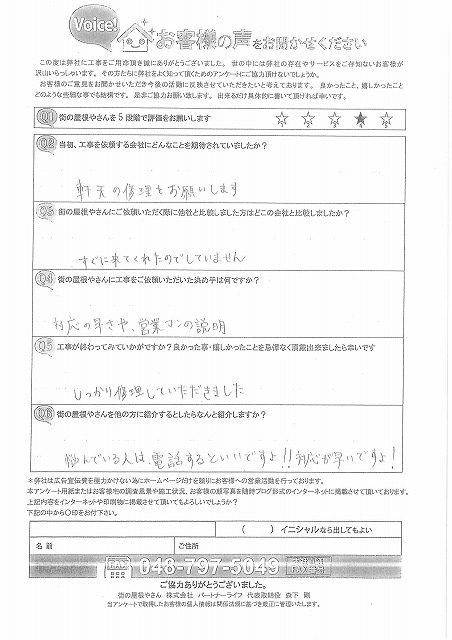 Voice!
お客様の声をお聞かせください
この度は弊社に工事をご用命頂き誠にありがとうございました。世の中には弊社の存在やサービスをご存知ないお客様が
沢山いらっしゃいます。その方たちに弊社をよく知って頂くためのアンケートにご協力頂けないでしょうか。
お客様のご意見をお聞かせいただき今後の活動に反映させていただきたいと考えております。良かったこと、嬉しかったこと
どのような些細な事でも結構です。是非ご協力お願い致します。出来るだけ具体的に書いて頂ければ幸いです。
Q1 街の屋根やさんを5段階で評価をお願いします
1 2 3 4 5
Q2 当初、工事を依頼する会社にどんなことを期待されていましたか?
軒天の修理をお願いします
Q3 街の屋根やさんにご依頼いただく際に他社と比較しました方はどこの会社と比較しましたか?
すぐに来てくれたのでしていません
Q4 街の屋根やさんに工事をご依頼いただいた決め手は何ですか?
対応の早さや、営業マンの説明
Q5 工事が終わってみていかがですか?良かった事・嬉しかったことを忌憚なく頂戴出来ましたら幸いです
しっかり修理していただきました
Q6 街の屋根やさんを他の方に紹介するとしたらなんと紹介しますか?
悩んでいる人は、電話するといいですよ!!対応が早いですよ!
*弊社は広告宣伝費を極力かけない為にホームページだけを頼りにお客様への営業活動を行っております。
本アンケート用紙またはお客様宅の調査風景や施工状況、お客様の顔写真を随時ブログ形式のインターネットに掲載させて頂いております。
上記内容をインターネットや印刷物に掲載させて頂いてもよろしいでしょうか?
下記の中から〇印をお付下さい。
( ) イニシャルなら出してもよい
名前
ご住所
048-797-5049
ご協力ありがとうございました。
街の屋根やさん 株式会社 パートナーライフ 代表取締役 森下 剛
当アンケートで取得したお客様の個人情報は関係法規に基づき厳正に管理いたします。